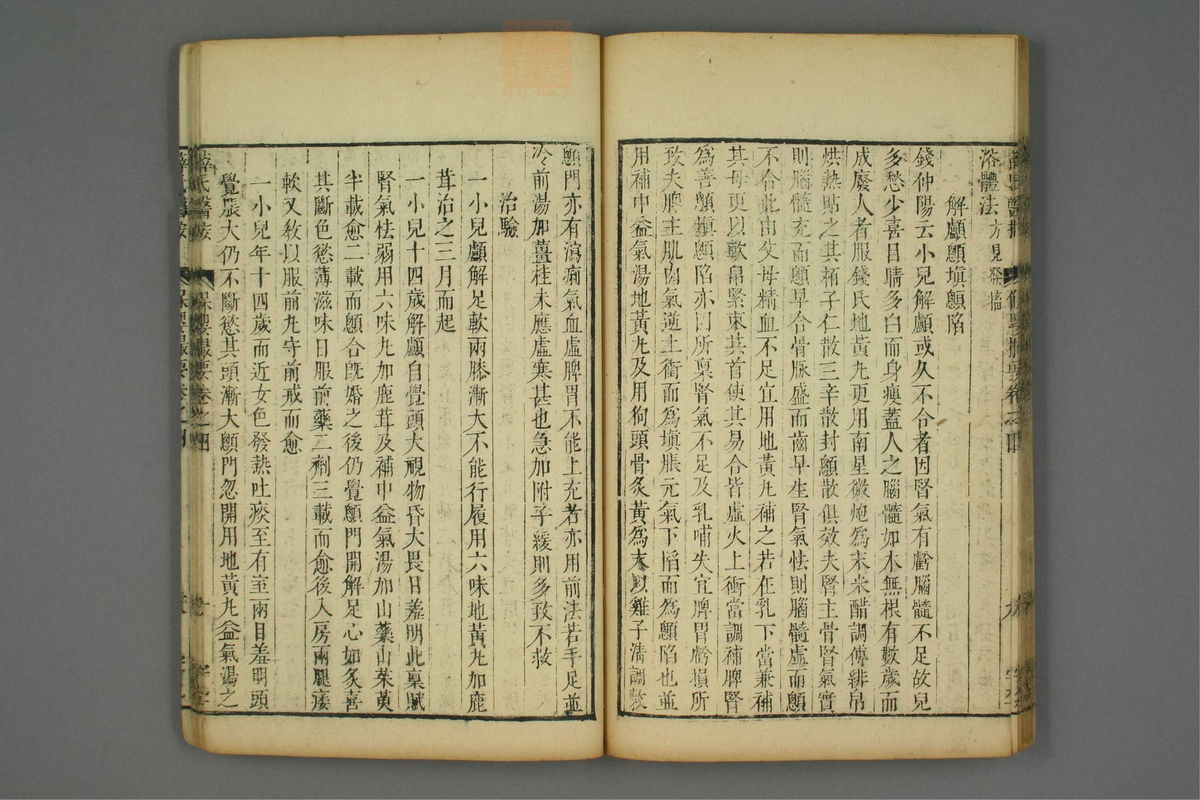 浴體法方見發搐
解顱顖塡顖陷
錢仲陽云小兒解顱或久不合者因腎氣有虧腦髓不足故兒
多愁少喜目睛多白而身瘦蓋人之腦髓如木無根有數歲而
成廢人者服錢氏地黃丸更用南星微炮爲末米醋調傅緋帛
烘熱貼之其柏子仁散三辛散封顖散俱效夫腎主骨腎氣實
則腦髓充而顖早合骨脉盛而齒早生腎氣怯則腦髓虛而顖
不合此由父母精血不足宜用地黃丸補之若在乳下當兼補
其母更以軟帛緊束其首使其易合皆虛火上衝當調補脾腎
爲善顖塡顖陷亦因所稟腎氣不足及乳哺失宜脾胃虧損所
致夫脾主肌肉氣逆上衝而爲塡脹元氣下陷而爲顖陷也並
用補中益氣湯地黃丸及用狗頭骨炙黃爲末以雞子淸調敷
顖門亦有瀉痢氣血虛脾胃不能上充者亦用前法若手足並
冷前湯加薑桂未應虛寒甚也急加附子緩則多致不救
治驗
一小兒顱解足軟兩膝漸大不能行履用六味地黃丸加鹿
茸治之三月而起
一小兒十四歲解顱自覺頭大視物昏大畏日羞明此稟賦
腎氣怯弱用六味丸加鹿茸及補中益氣湯加山藥山茱萸
半載愈二載而顖合旣婚之後仍覺顖門開解足心如炙喜
其斷色慾薄滋味日服前藥二劑三載而愈後入房兩腿痿
軟又敎以服前丸守前戒而愈
一小兒年十四歲而近女色發熱吐痰至有室兩目羞明頭
覺脹大仍不斷慾其頭漸大顖門忽開用地黃丸益氣湯之
薛氏醫按
保嬰撮要卷之四